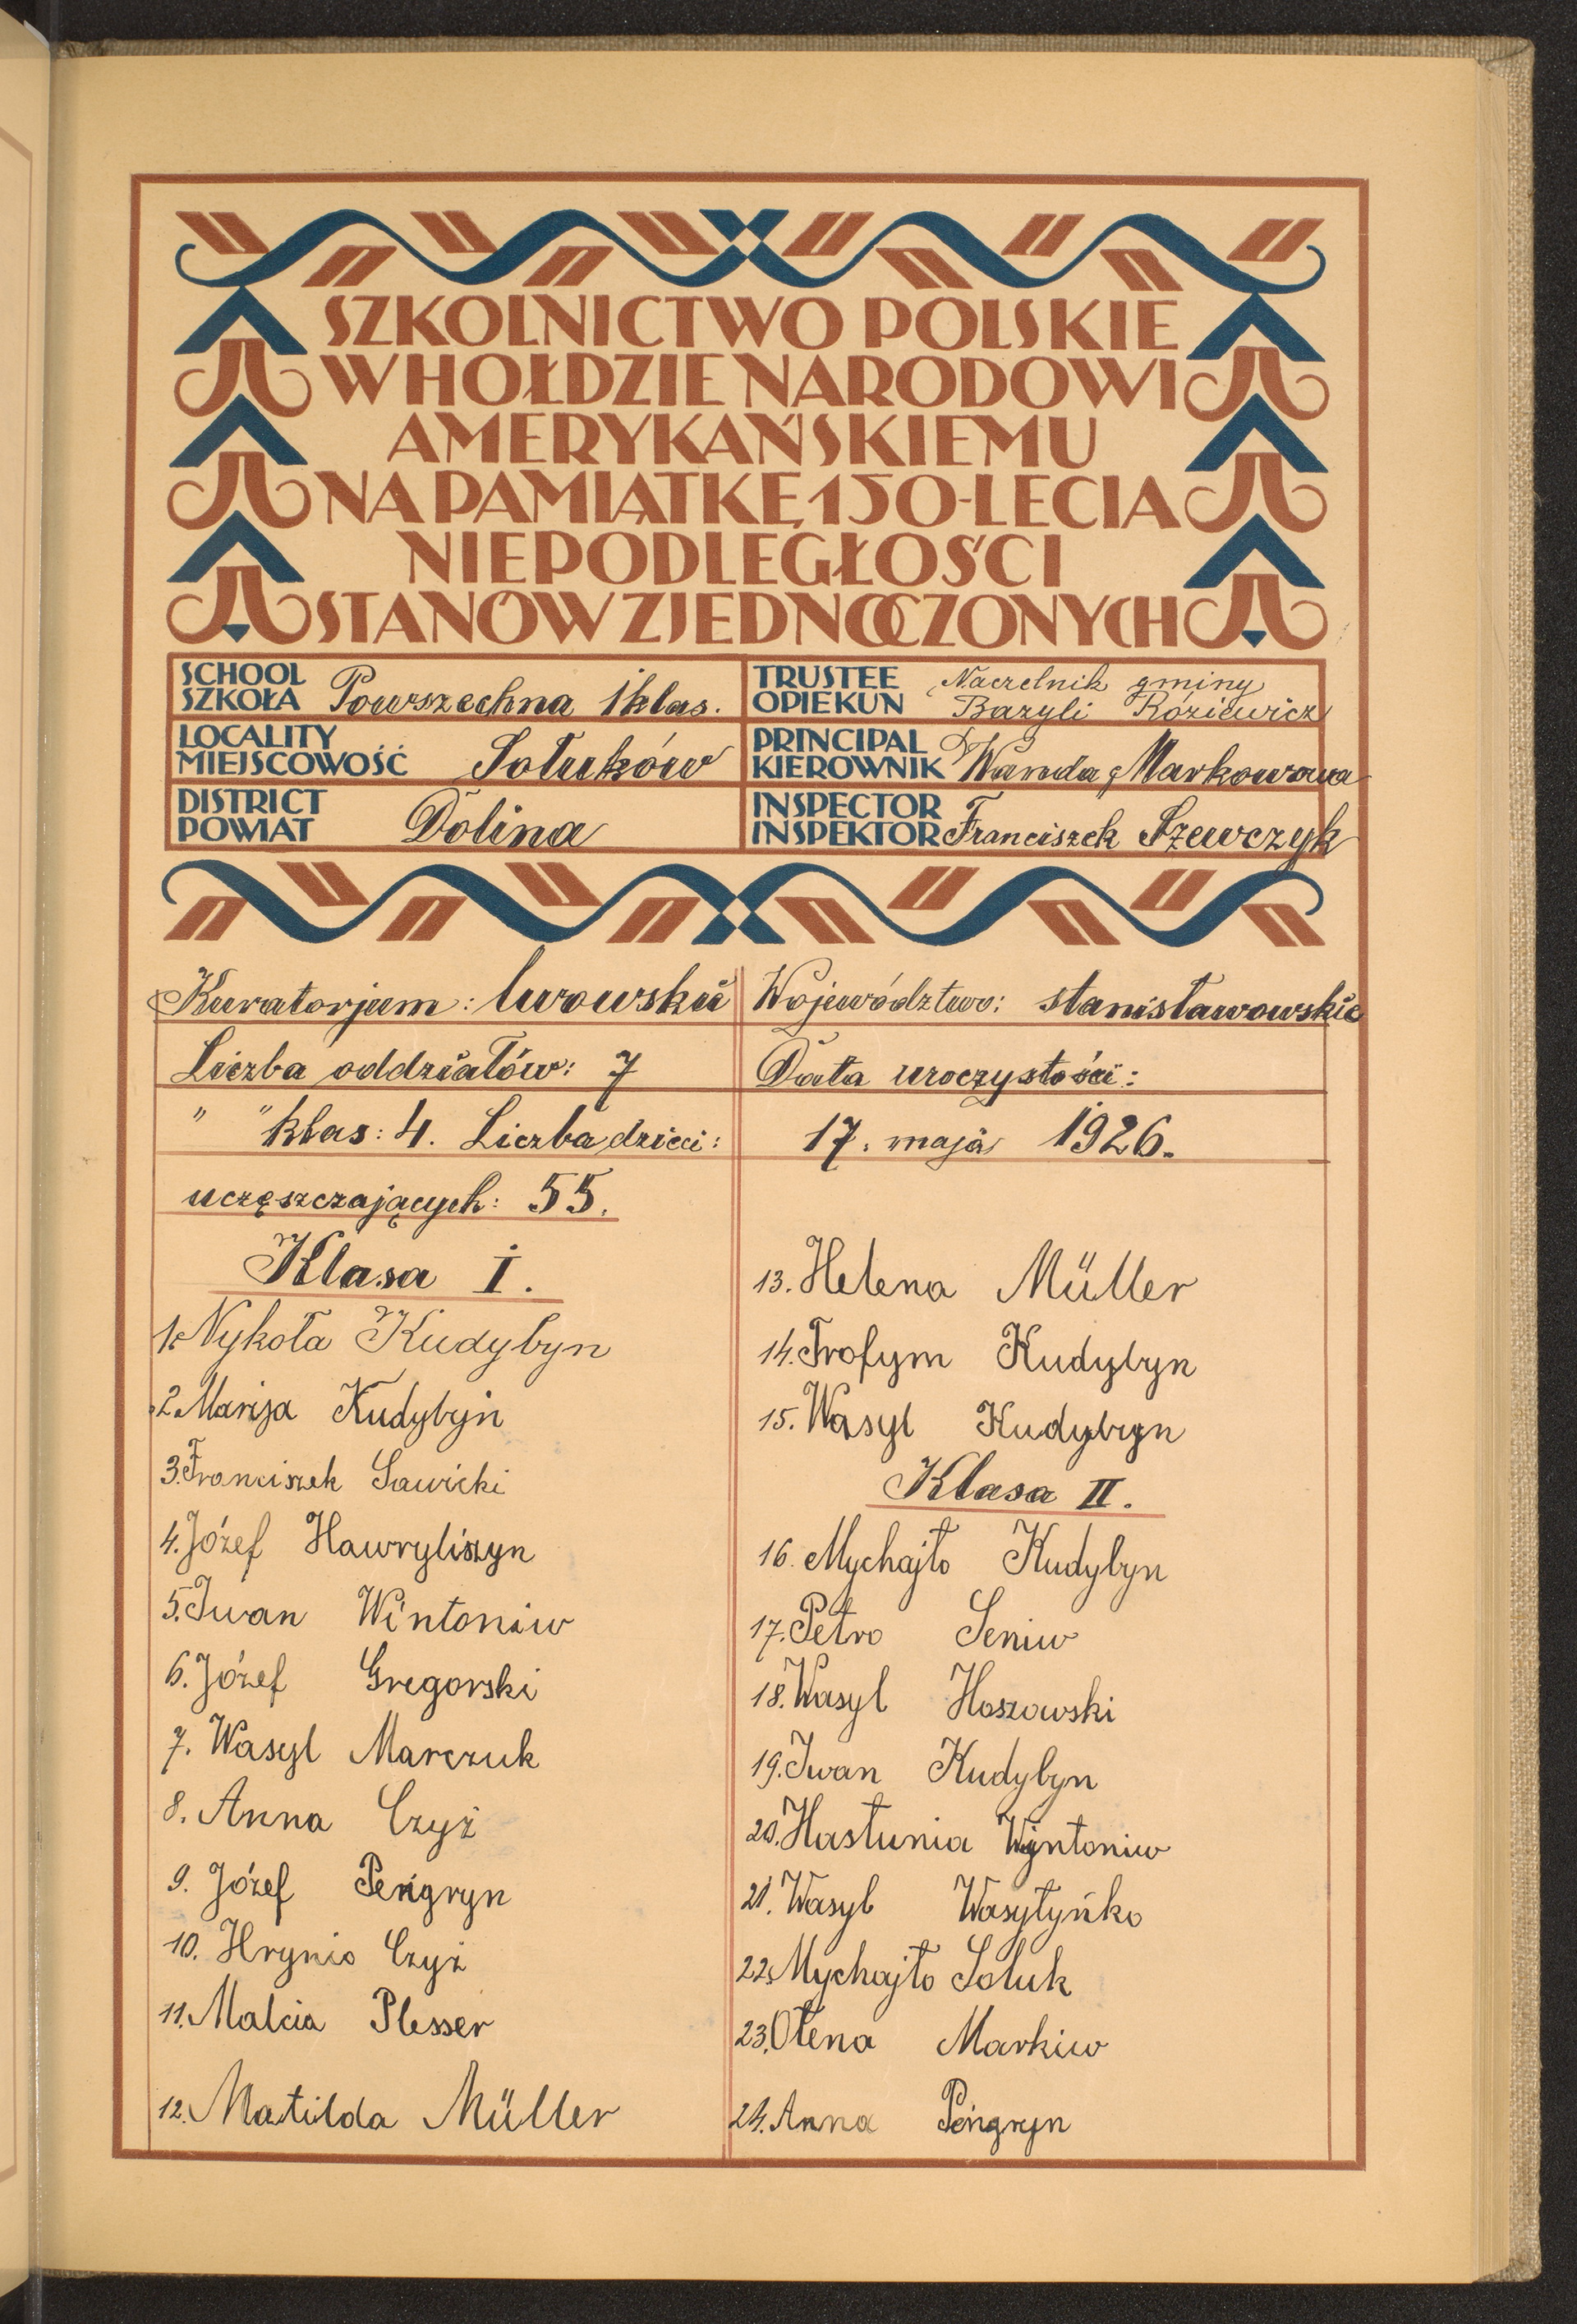 SZKOLNICTWO POLSKIE
W HOŁDZIE NARODOWI
AMERYKAŃSKIEMU
NA PAMIĄTKĘ 150-LECIA
NIEPODLEGŁOŚCI
STANÓW ZJEDNOCZONYCH
SCHOOL
SZKOŁA Powszechna 1 klas.
TRUSTEE
OPIEKUN Naczelnik gminy
Bazyli Róziewicz
LOCALITY
MIEJSCOWOŚĆ Sołuków
PRINCIPAL
KIEROWNIK Wanda Markowowa
DISTRICT
POWIAT Dolina
INSPECTOR
INSPEKTOR Franciszek Szewczyk
Kuratorjum: lwowskie
Województwo: stanisławowskie
Liczba oddziałów: 7
Data uroczystości:
" " klas: 4. Liczba dzieci:
17. maja 1926.
uczęszczających: 55.
Klasa I.
1. Nykoła Kudybyn
2. Marija Kudybyn
3. Franciszek Sawicki
4. Józef Hawryliszyn
5. Iwan Wintoniw
6. Józef Gregorski
7. Wasyl Marczuk
8. Anna Czyż
9. Józef Pengryn
10. Hrynio Czyż
11. Malcia Plesser
12. Matilda Müller
13. Helena Müller
14. Trofym Kudybyn
15. Wasyl Kudybyn
Klasa II.
16. Mychajło Kudybyn
17. Petro Seniw
18. Wasyl Hoszowski
19. Iwan Kudybyn
20. Hastunia Wyntoniw
21. Wasyl Wasyłyńko
22. Mychajło Soluk
23. Ołena Markiw
24. Anna Pengryn